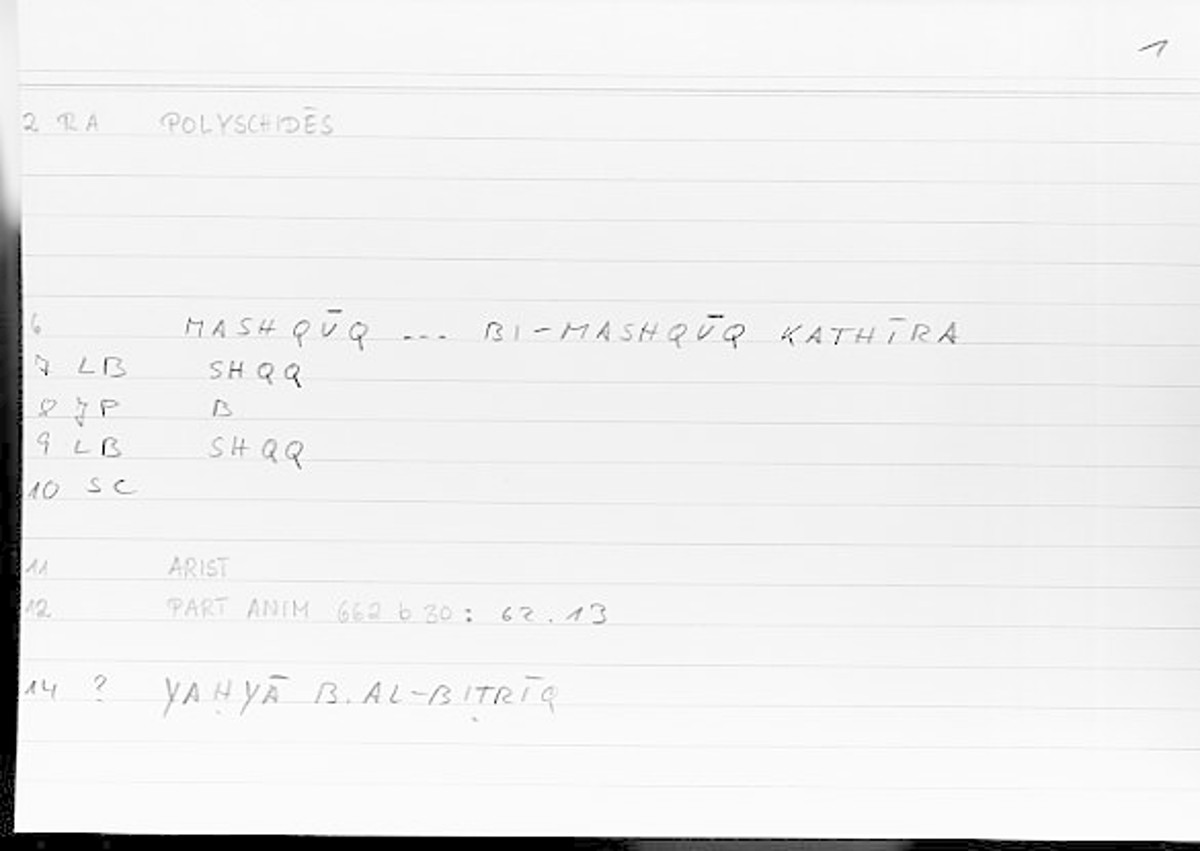 1
2 RA POLYSCHIDĒS
6 MASHQŪQ ... BI-MASHQŪQ KATHĪRA
7 LB SHQQ
8 JP B
9 LB SHQQ
10 SC
11 ARIST
12 PART ANIM 662 b 30: 62.13
14 ? YAḤYĀ B. AL-BIṬRĪQ